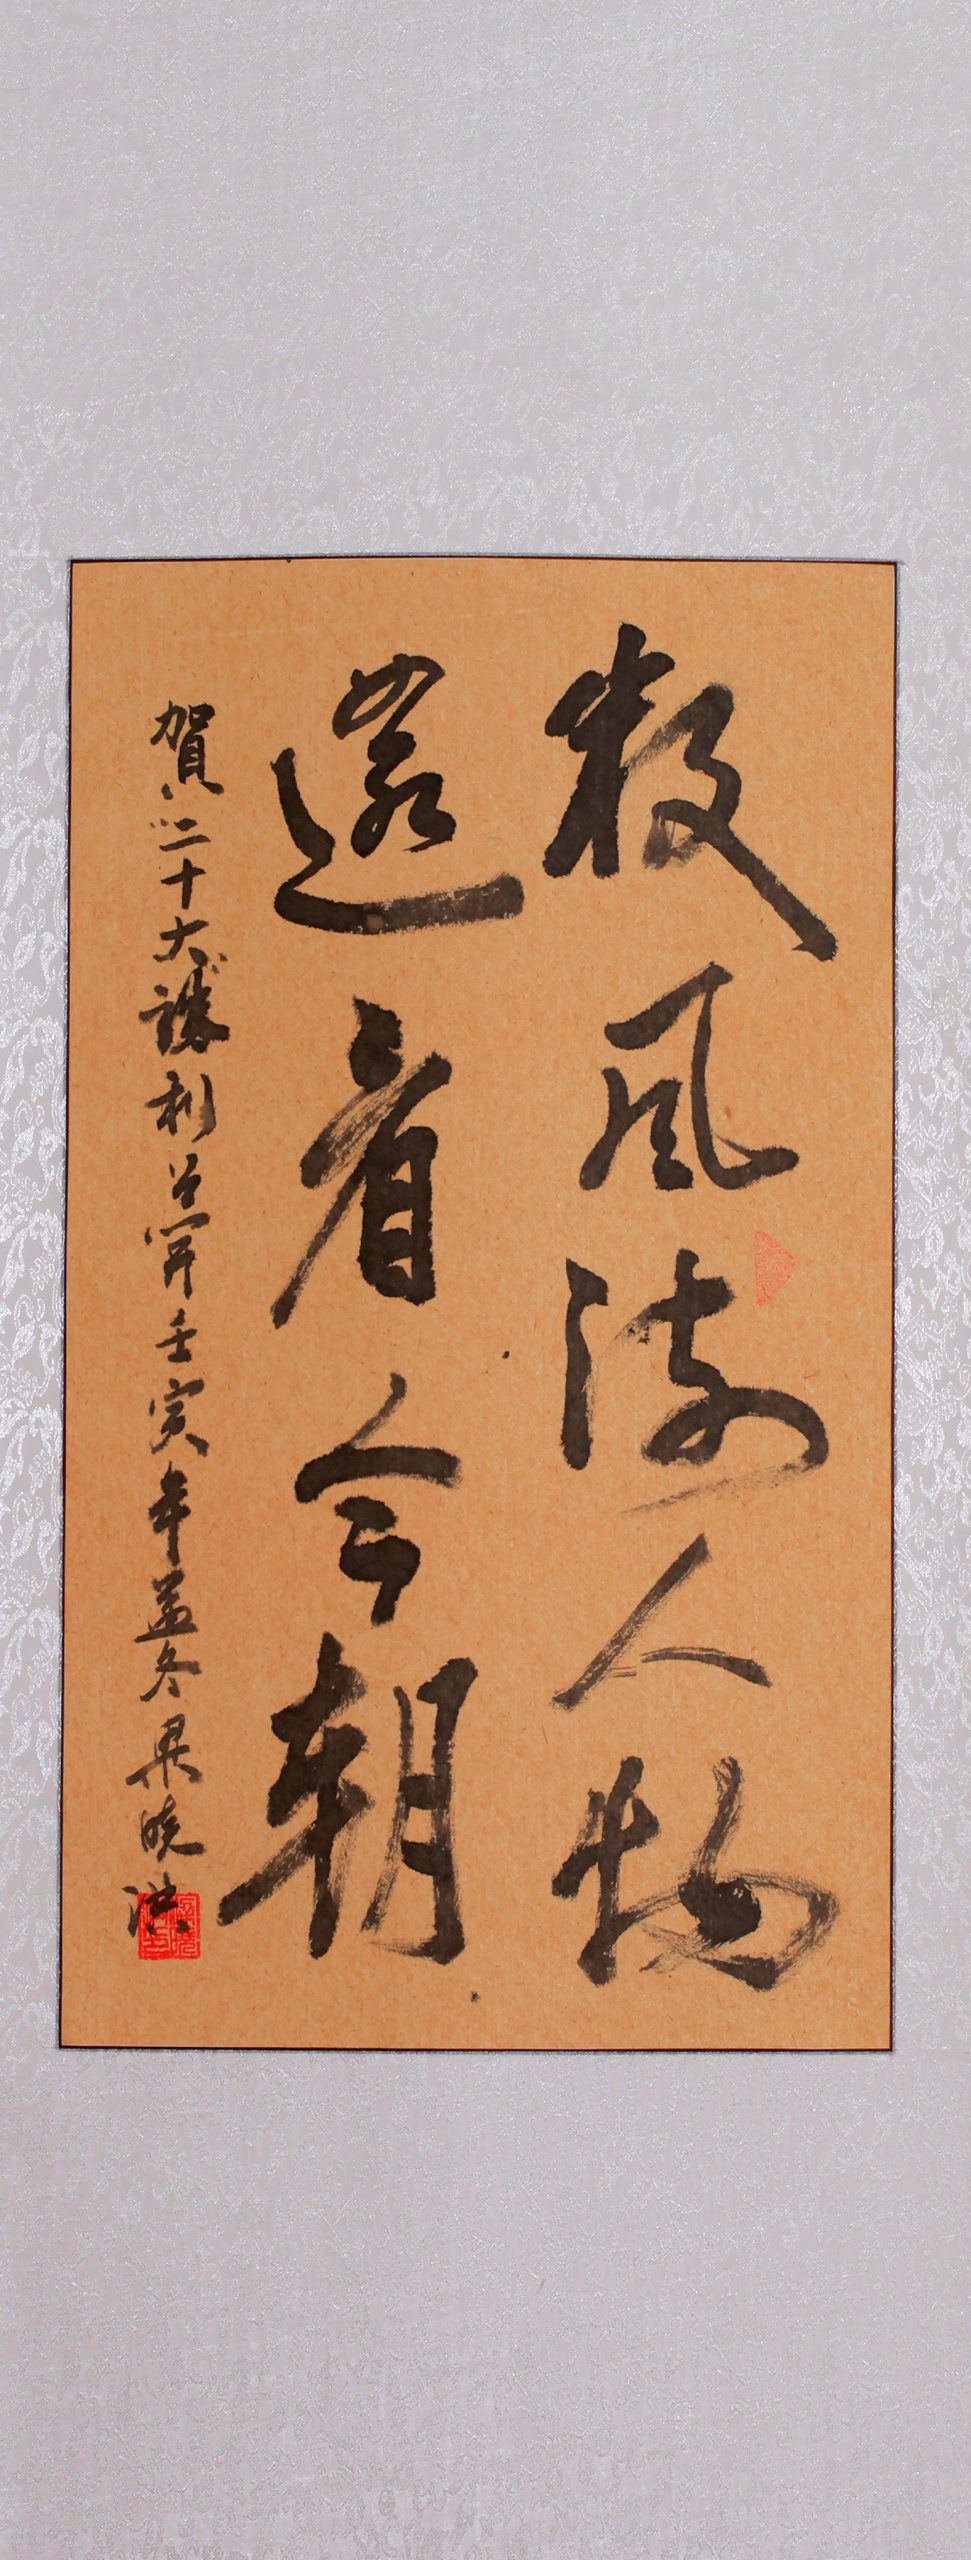 數風流人物
還看今朝
賀二十大勝利召開壬寅年孟冬梁曉洪